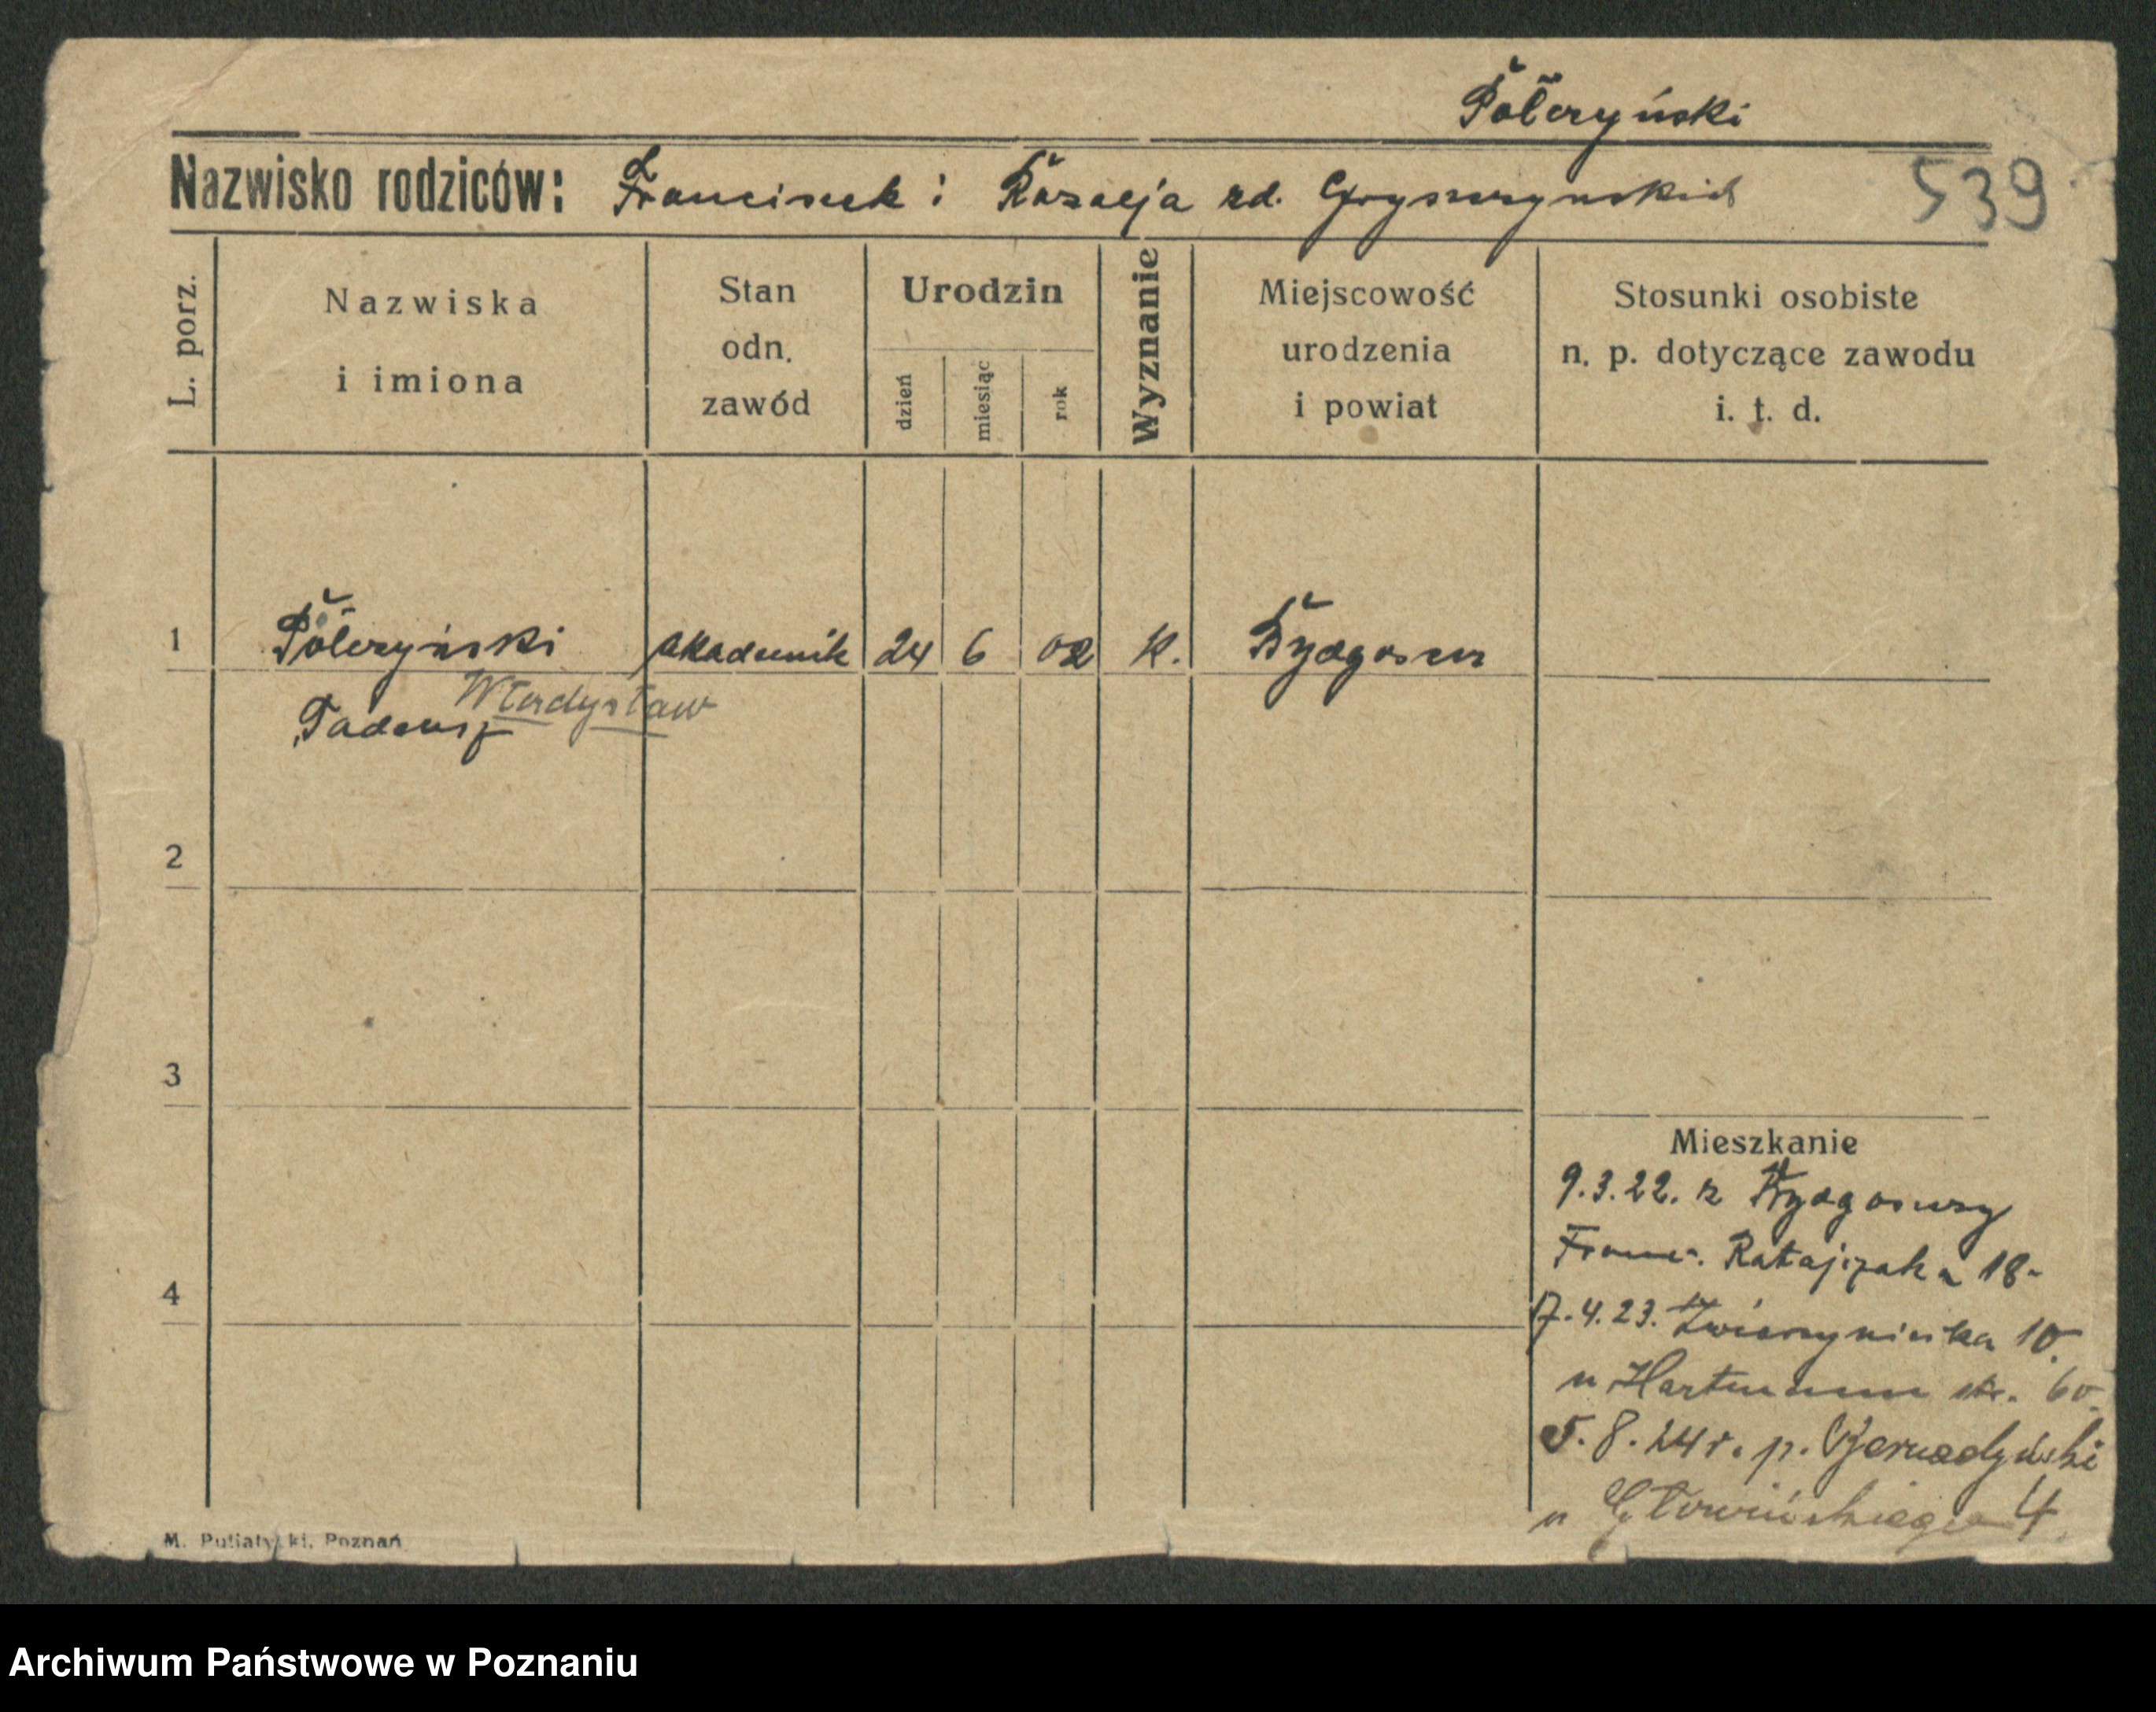 Połczyński
Nazwisko rodziców: Franciszek i Rozalja zd. 539
L. porz.
Nazwiska i imiona
Stan odn. zawód
Urodzin
dzień
miesiąc
rok
Wyznanie
Miejscowość urodzenia i powiat
Stosunki osobiste n. p. dotyczące zawodu i. t. d.
1 Połczyński akademik 24 6 02 K. Bydgoszcz
Władysław
Tadeusz
2
3
Mieszkanie
9.3.22. z Bydgoszczy
4 Franc. Ratajczaka 18-
17.4.23. Zwierzyniecka 10.
u Hartmann
5.8.24 r. p.
u 4
M. Putiatycki, Poznań
Archiwum Państwowe w Poznaniu